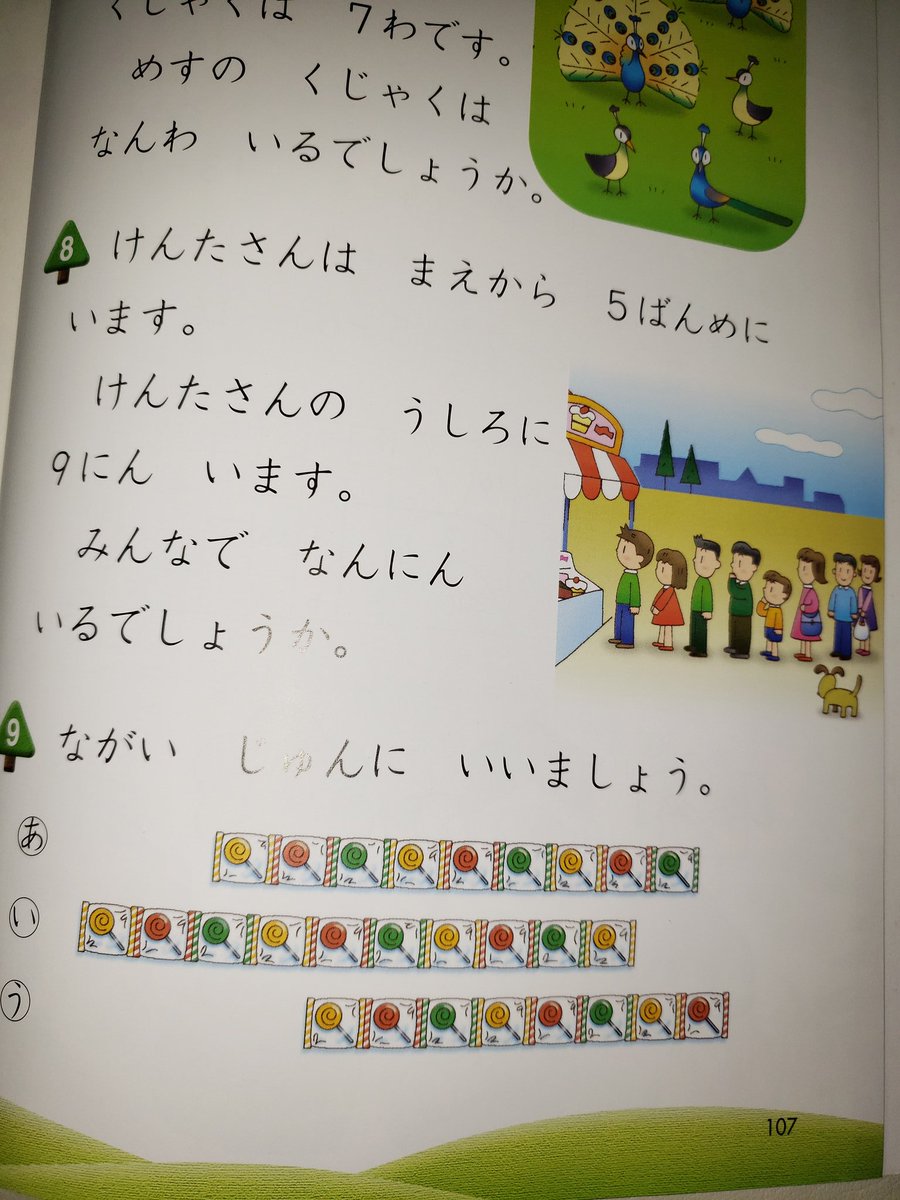 くじゃくは 7わです。
めすの くじゃくは
なんわ いるでしょうか。
8 けんたさんは まえから 5ばんめに
います。
けんたさんの うしろに
9にん います。
みんなで なんにん
いるでしょうか。
9 ながい じゅんに いいましょう。
あ
い
う
107